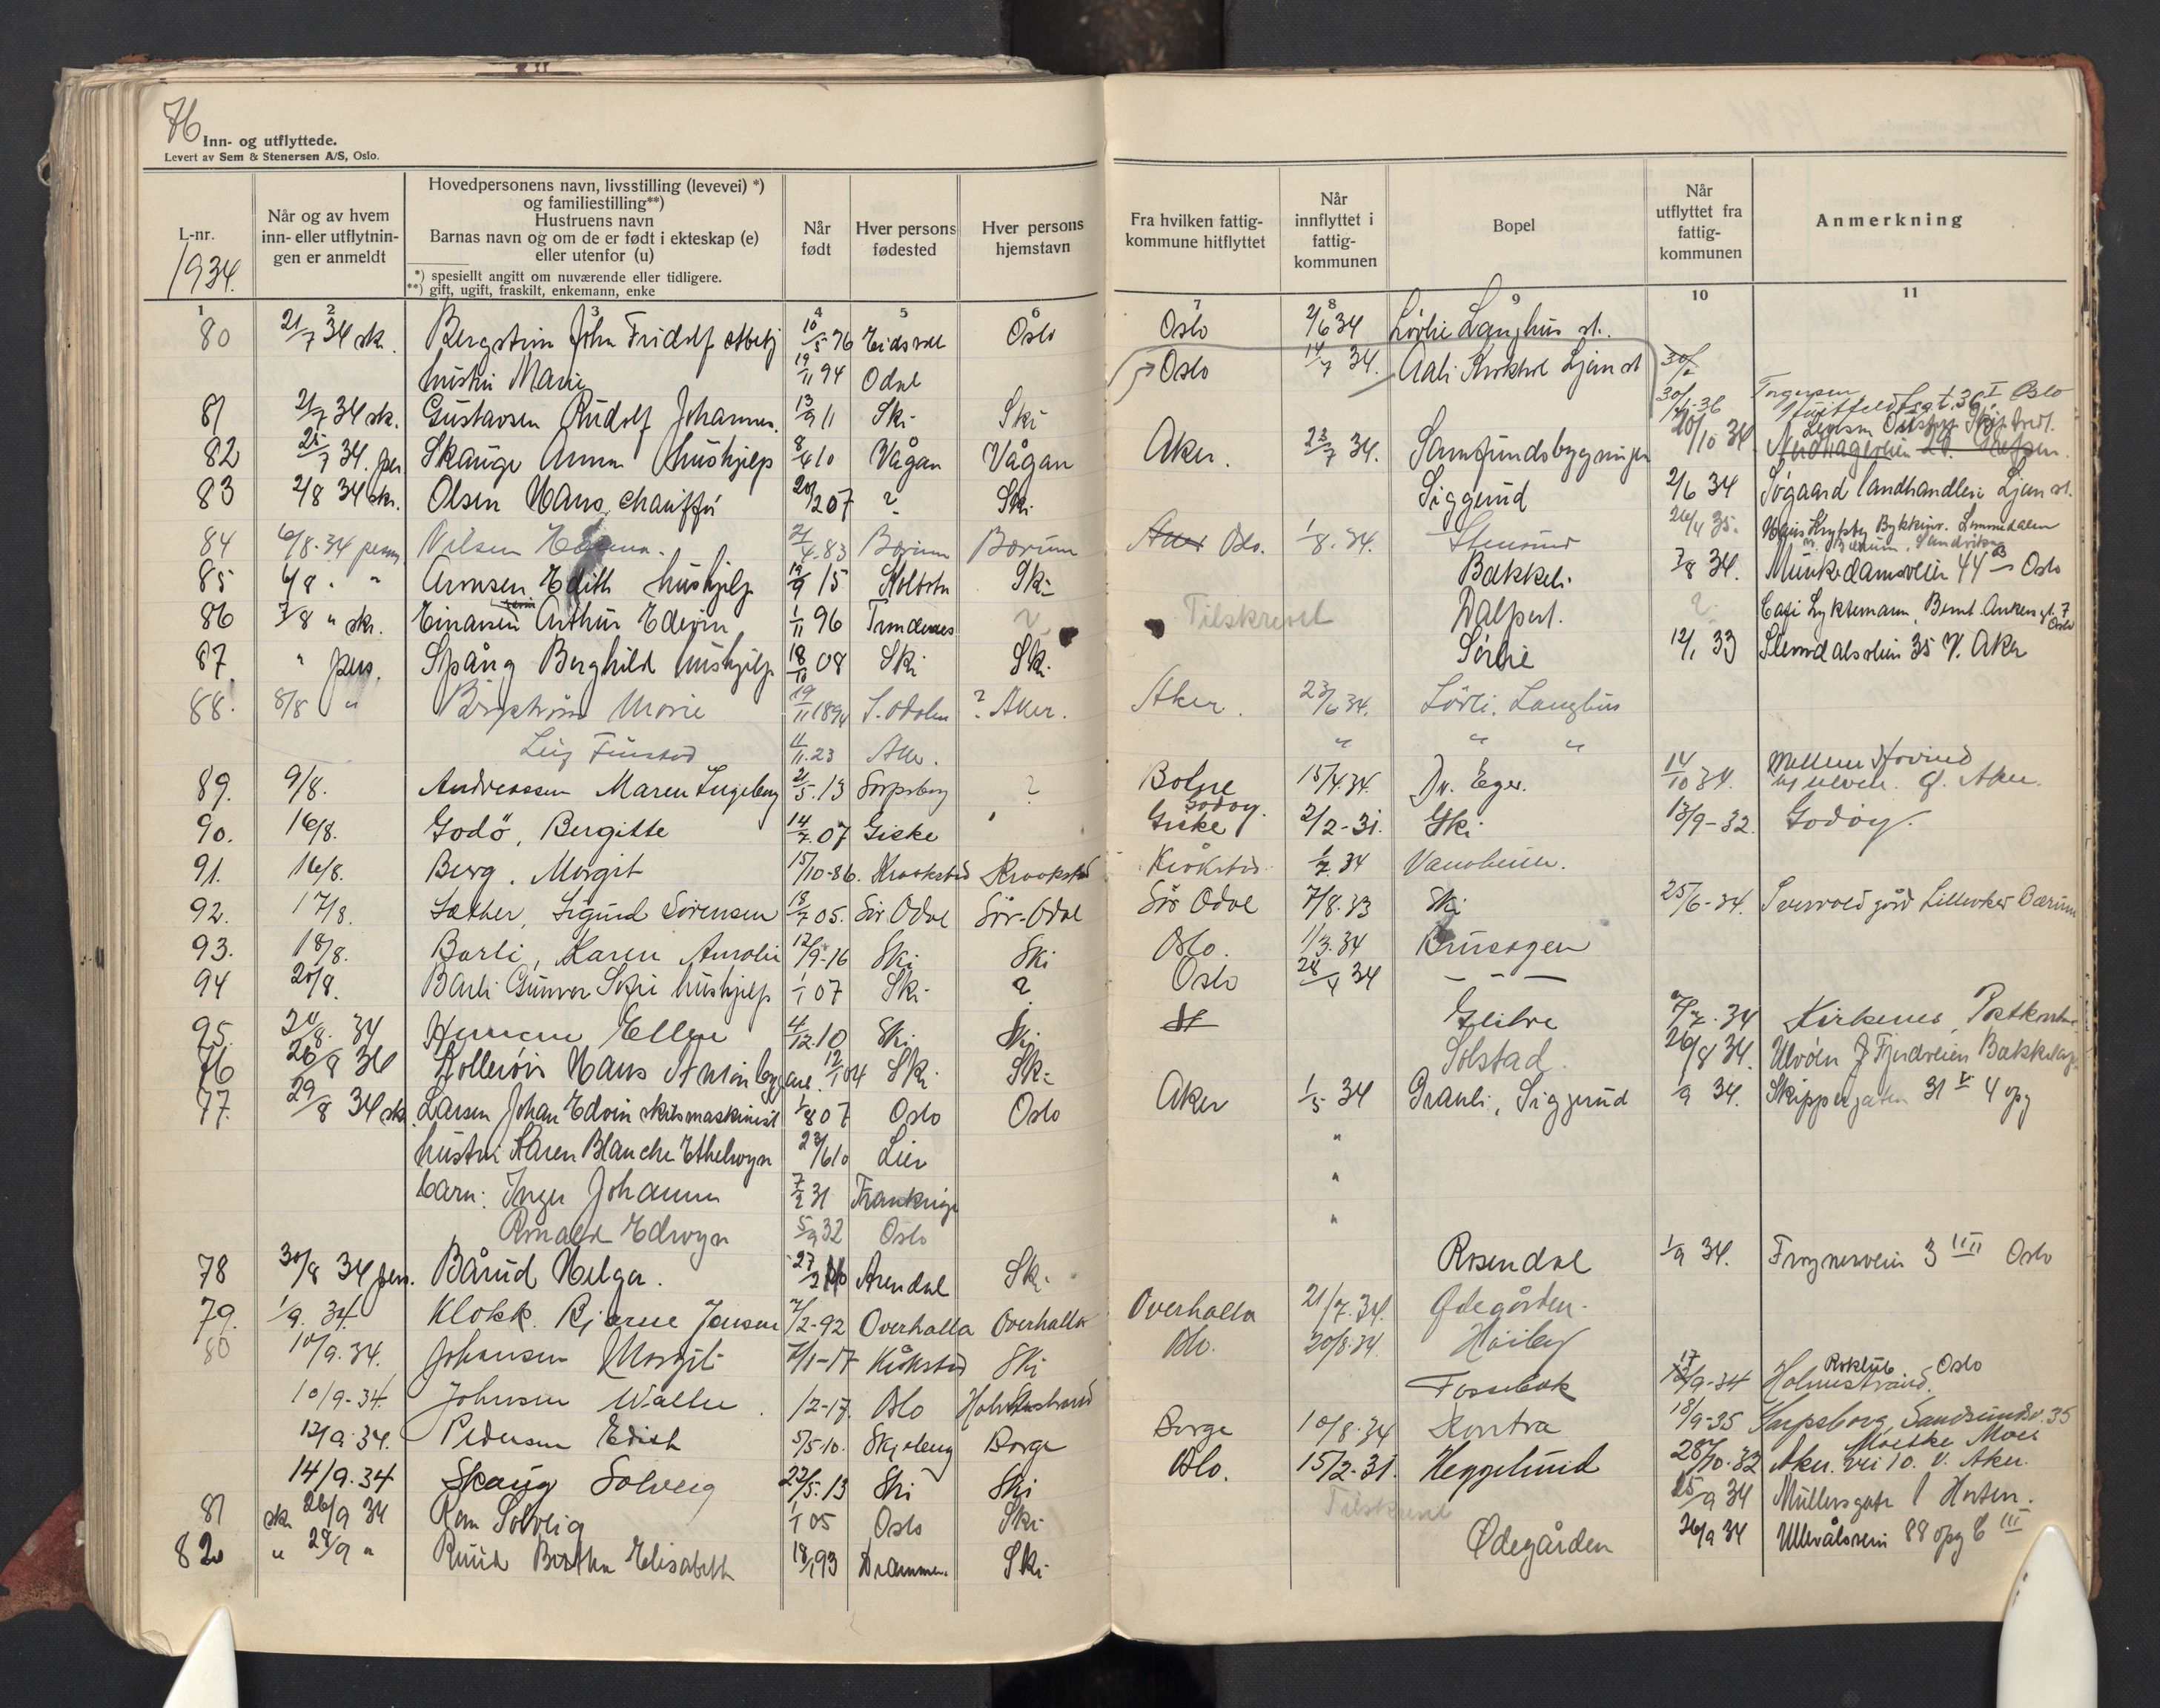 76
Inn- og utflyttede.
Levert av Sem & Stenersen A/S, Oslo.
L-nr.
1934.
Når og av hvem
inn- eller utflytnin-
gen er anmeldt
Hovedpersonens navn, livsstilling (levevei) *)
og familiestilling**)
Hustruens navn
Barnas navn og om de er født i ekteskap (e)
eller utenfor (u)
*) spesiellt angitt om nuværende eller tidligere.
**) gift, ugift, fraskilt, enkemann, enke
Når
født
Hver persons
fødested
Hver persons
hjemstavn
Fra hvilken fattig-
kommune hitflyttet
Når
innflyttet i
fattig-
kommunen
Bopel
Når
utflyttet fra
fattig-
kommunen
Anmerkning
1 2 3 4 5 6 7 8 9 10 11
80 21/7 34 sk. Bergström John Fridolf arbeid 10/5 76 Eidsvoll Oslo Oslo 2/6 34 Lörlie Langhus st.
hustru Marie 19/11 94 Odal Oslo 14/7 34. Aali Krokhol Ljan st
81 21/7 34 sk. Gustavsen Rudolf Johannes. 13/9 11 Ski Ski 30/1-36 Torgersen Huitfeldtsgt. 36 I Oslo
82 25/7 34. per Skauge Anna hushjelp 8/4 10 Vågan Vågan Aker. 23/7 34. Samfundsbygningen 20/10 34
83 2/8 34 sk. Olsen Hans, chauffør 20/2 07 ? Ski Siggerud 2/6 34 Søgaard landhandleri Ljan st.
84 6/8-34 person Nilsen 21/4-83 Bærum Bærum Aker Oslo. 1/8. 34. Stensrud 26/4 35.
Bærum, Sandvika
85 6/8 " " Arnesen Edith hushjelp 19/9 15 Holtet Ski Bakkeli 7/8 34. Munkedamsveien 44 B Oslo
86 7/8 " sk. Einarsen Arthur Edvin 1/11 96 Trondenes ? Tilskrevet Dalpert. ? Café Lyktemann, Bernt Ankers gt. 7 Oslo
87. " pers. Spång Borghild hushjelp 18/10 08 Ski Ski Sörlie 12/1 33 Slemdalsveien 35 V. Aker
88. 8/8 " Bergström Marie 19/11 1894 S. Odalen ? Aker. Aker. 23/6 34. Lörli. Langhus
Finstad 4/11.23 Aker. " " "
89. 9/8. Andreassen Maren Ingeborg 21/5.13 Sarpsborg ? 15/4 34. Dr. Eger. 14/10 34. Mellem Hovind
90. 16/8. Godö, Bergitte 14/7 07 Giske Giske Godøy. 2/2-31. Ski 13/9-32. Godøy.
91. 16/8. Berg. Margit 15/10-86. Kraakstad Kraakstad Kråkstad 1/7. 34 Vanoheim.
92. 17/8. Sæther, Sigurd Sörensen 18/7 05. Sör Odal Sör-Odal Sör Odal 7/8. 33 Ski 25/6-34. gård Lilleaker Bærum
93. 18/8. Barli, Karen Amalie 12/9-16 Ski Ski Oslo. 1/3. 34 Brusagen
94 20/8. Barli Gunvor Sofie hushjelp 1/1 07 Ski ? Oslo 28/4 34 — — —
95. 24/8. 34 Ellen 4/12.10 Ski Ski Glitre 34 Kirkenes, Postkontor
76 26/8 34 Kolleröis Hans Anton 12/1 04 Ski Ski Solstad. 26/8 34. Ulvöen Fjordveien Bækkelag
77. 29/8 34 sk Larsen Johan Edvin skibsmaskinist 1/8 07 Oslo Oslo Aker 1/5 34 Granli, Siggerud 1/9 34. Skippergaten 31 V 4 opg
hustru Karen Blanche Ethelwyn 23/6 10 Lier "
barn: Inger Johanne 7/2 31 Frankrige "
Ronald Edwyn 5/9 32 Oslo "
78 30/8 34 pers. Bårud Helga. Arendal Ski Rosendal 1/9 34. Frognerveien 3 III Oslo
79. 1/9. 34. Klokk. Bjarne Jensen 7/2-92 Overhalla Overhalla Overhalla 21/7. 34. Ødegården.
80 10/9. 34. Johansen Margit 7/1-17 Kråkstad Ski Oslo. 20/8. 34. Haiby
10/9-34. Johnsen Walter. 1/2-17. Oslo Holmestrand Fossebek 17/9-34 Holmestrand. Roklub Oslo
13/9. 34. Pedersen Edith 5/5-10. Skjeberg Borge Borge 10/8. 34 Kontra 18/9-35 Sarpsborg, Sandesundsv. 35
14/9. 34 Skaug Solveig 22/5. 13 Ski Ski Oslo. 15/2-31. Heggelund 28/10. 32 Moltke Moes vei 10. V. Aker.
81 sk 26/9 34 Rom Solveig 1/1 05 Oslo Ski Tilskrevet 25/9 34 Müllersgate 1 Horten.
82 " 28/9 " Ruud Bertha Elisabeth 18/1 93 Drammen. Ski Ødegården 26/9 34 Ullevålsveien 88 opg C III